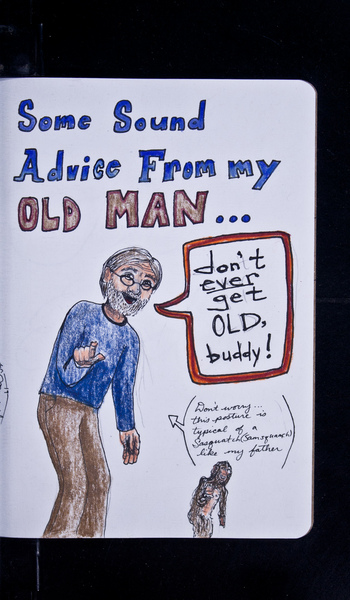 Some Sound
Advice From my
OLD MAN...
don't
ever
get
OLD,
buddy!
Don't worry...
this posture is
typical of a
Sasquatch (Samsquanch)
like my father